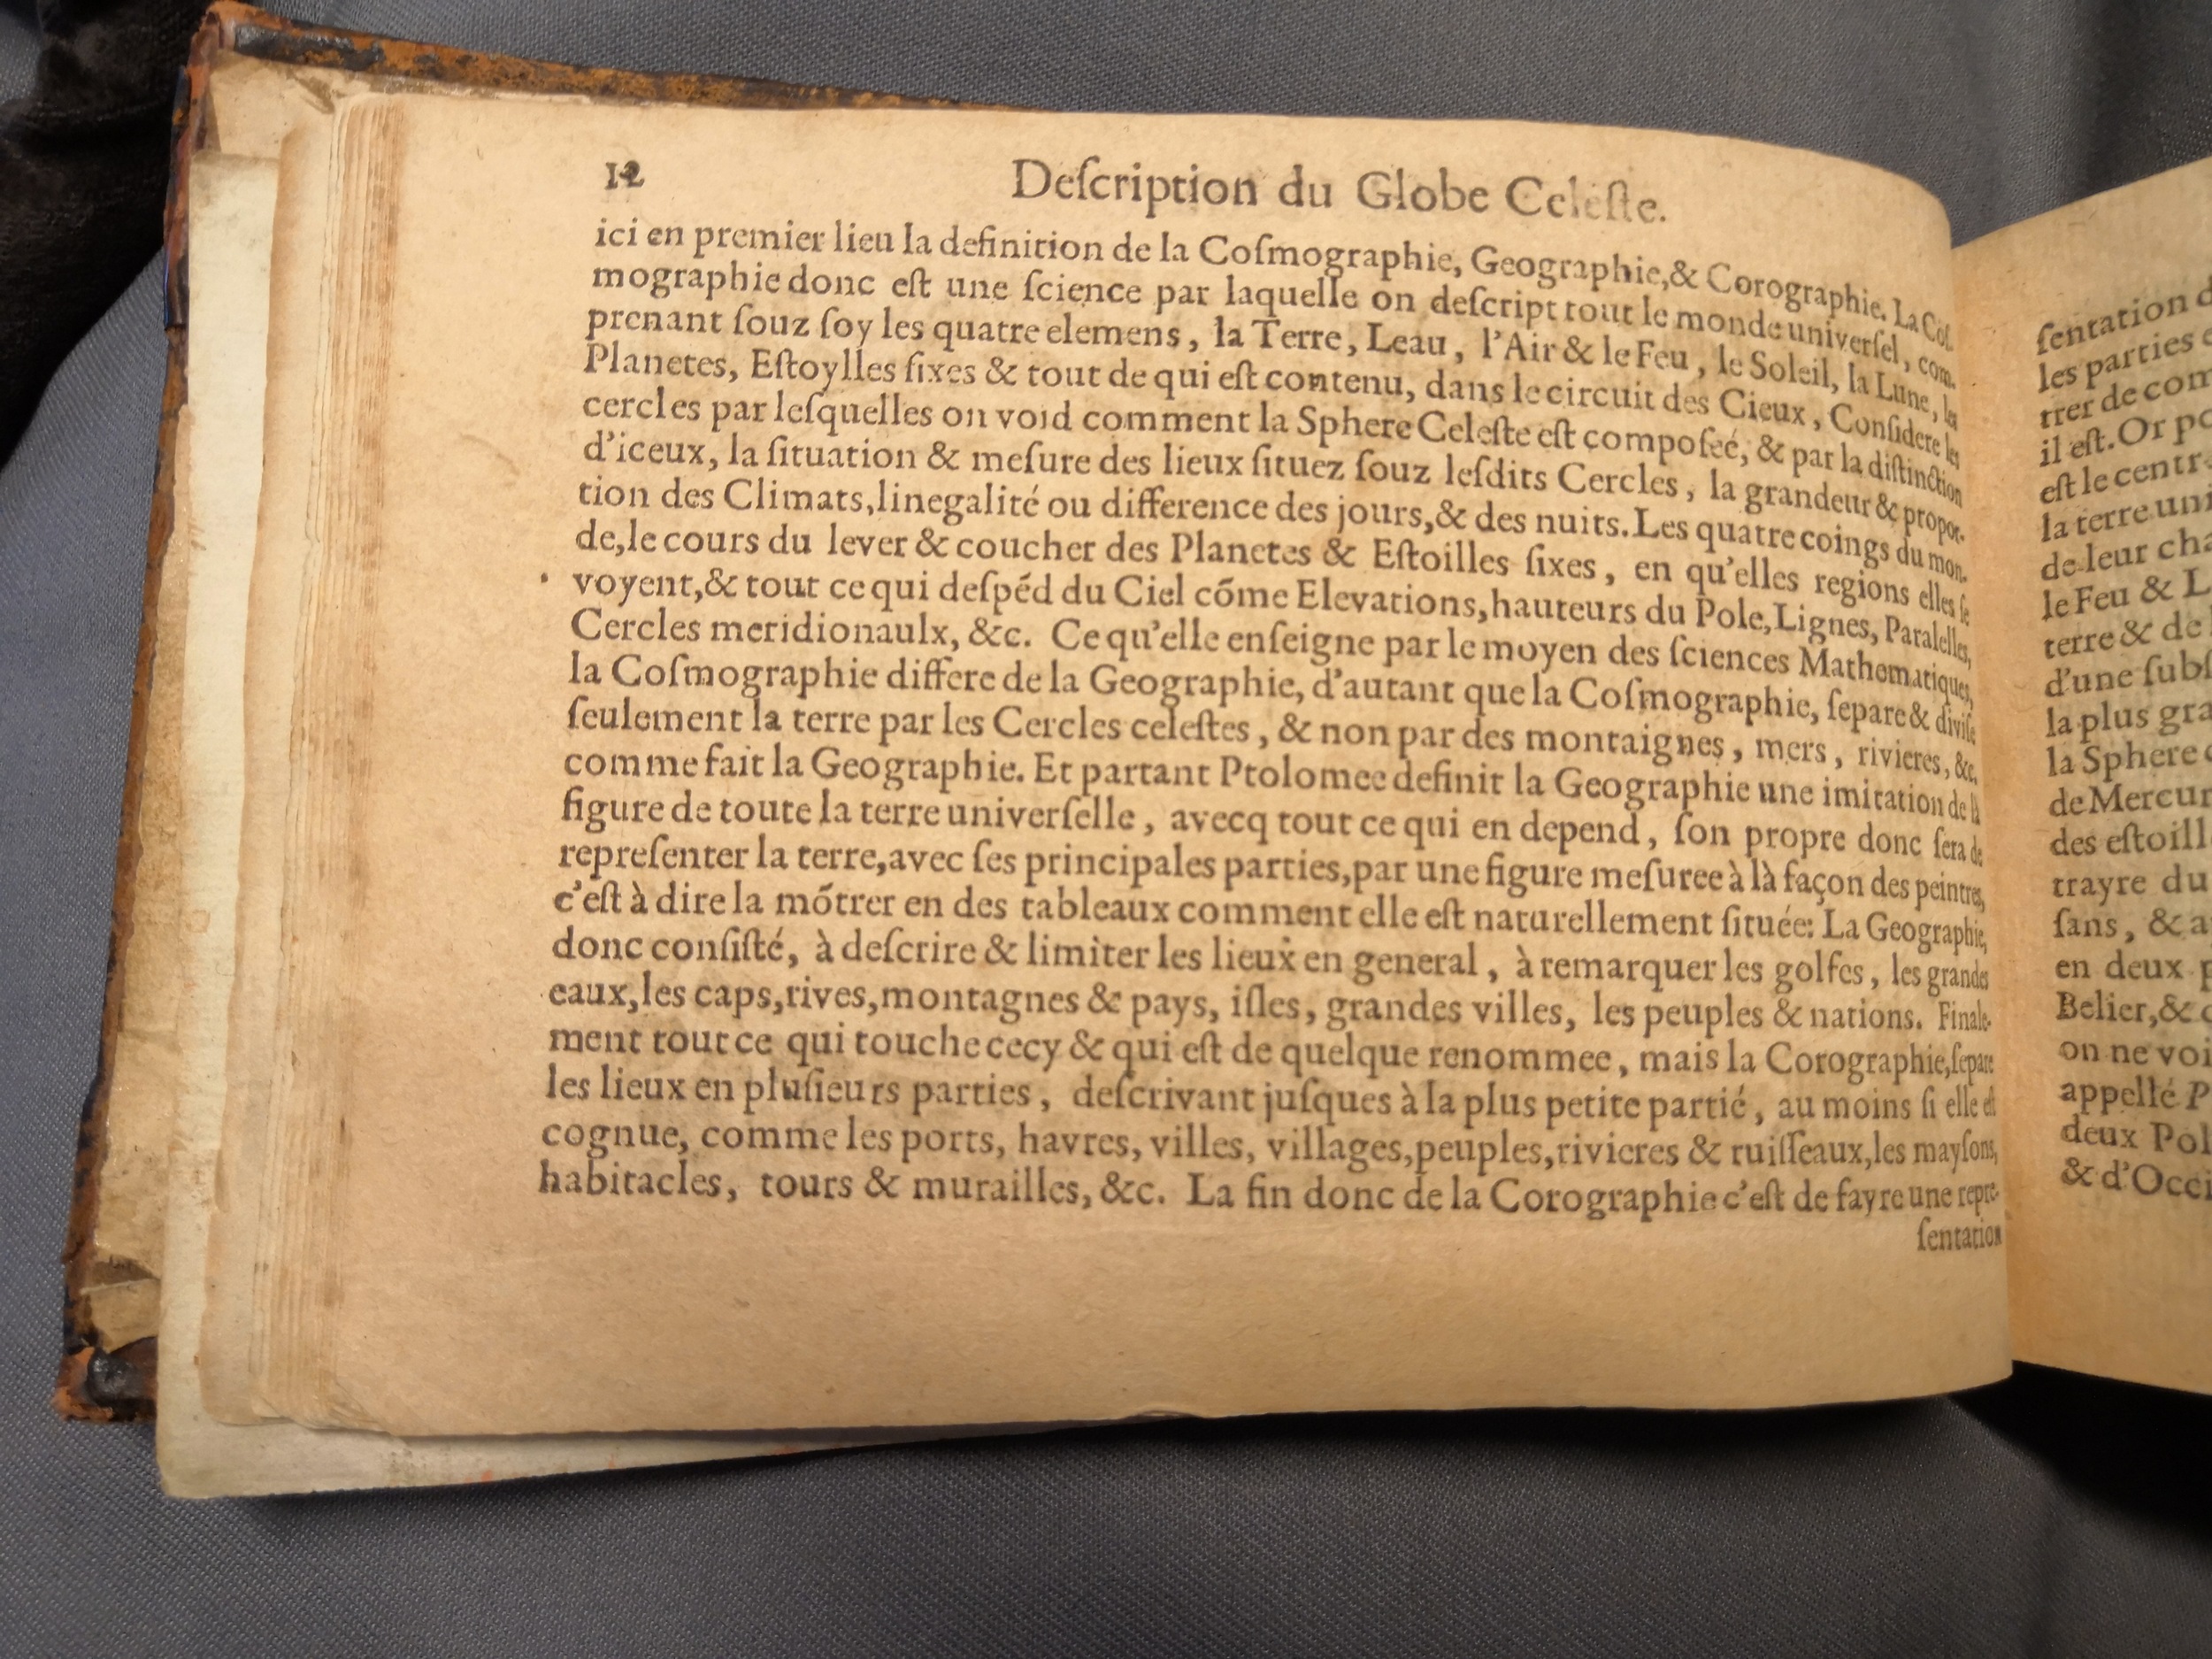 12
Deſcription du Globe Celeſte.
ici en premier lieu la definition de la Coſmographie, Geographie,& Corographie. La Coſ-
mographie donc eſt une ſcience par laquelle on deſcript tout le monde univerſel, com-
prenant ſouz ſoy les quatre elemens, la Terre, Leau, l'Air & le Feu, le Soleil, la Lune, les
Planetes, Eſtoylles fixes & tout de qui eſt contenu, dans le circuit des Cieux, Conſidere les
cercles par leſquelles on void comment la Sphere Celeſte eſt compoſeé, & par la diſtinction
d'iceux, la ſituation & meſure des lieux ſituez ſouz leſdits Cercles, la grandeur & propor-
tion des Climats,linegalité ou difference des jours,& des nuits. Les quatre coings du mon-
de,le cours du lever & coucher des Planetes & Eſtoilles fixes, en qu'elles regions elles ſe
voyent,& tout ce qui deſpẽd du Ciel cõme Elevations,hauteurs du Pole,Lignes, Paralelles,
Cercles meridionaulx, &c. Ce qu'elle enſeigne par le moyen des ſciences Mathematiques,
la Coſmographie differe de la Geographie, d'autant que la Coſmographie, ſepare & diviſe
ſeulement la terre par les Cercles celeſtes, & non par des montaignes, mers, rivieres, &c.
comme fait la Geographie. Et partant Ptolomee definit la Geographie une imitation de la
figure de toute la terre univerſelle, avecq tout ce qui en depend, ſon propre donc ſera de
repreſenter la terre,avec ſes principales parties,par une figure meſuree à là façon des peintres,
c'eſt à dire la mõtrer en des tableaux comment elle eſt naturellement ſituée: La Geographie,
donc conſiſté, à deſcrire & limiter les lieux en general, à remarquer les golfes, les grandes
eaux,les caps,rives,montagnes & pays, iſles, grandes villes, les peuples & nations. Finale-
ment tout ce qui touche cecy & qui eſt de quelque renommee, mais la Corographie,ſepare
les lieux en pluſieurs parties, deſcrivant juſques à la plus petite partié, au moins ſi elle eſt
cognue, comme les ports, havres, villes, villages,peuples,rivieres & ruiſſeaux,les mayſons,
habitacles, tours & murailles, &c. La fin donc de la Corographie c'eſt de fayre une repre-
ſentation
ſentation
les parties
trer de
il eſt. Or
eſt le
la terre
de leur
le Feu &
terre & de
d'une
la plus
la Sphere
de
des
trayre du
ſans, &
en deux
Belier,&
on ne
appellé
deux
& d'